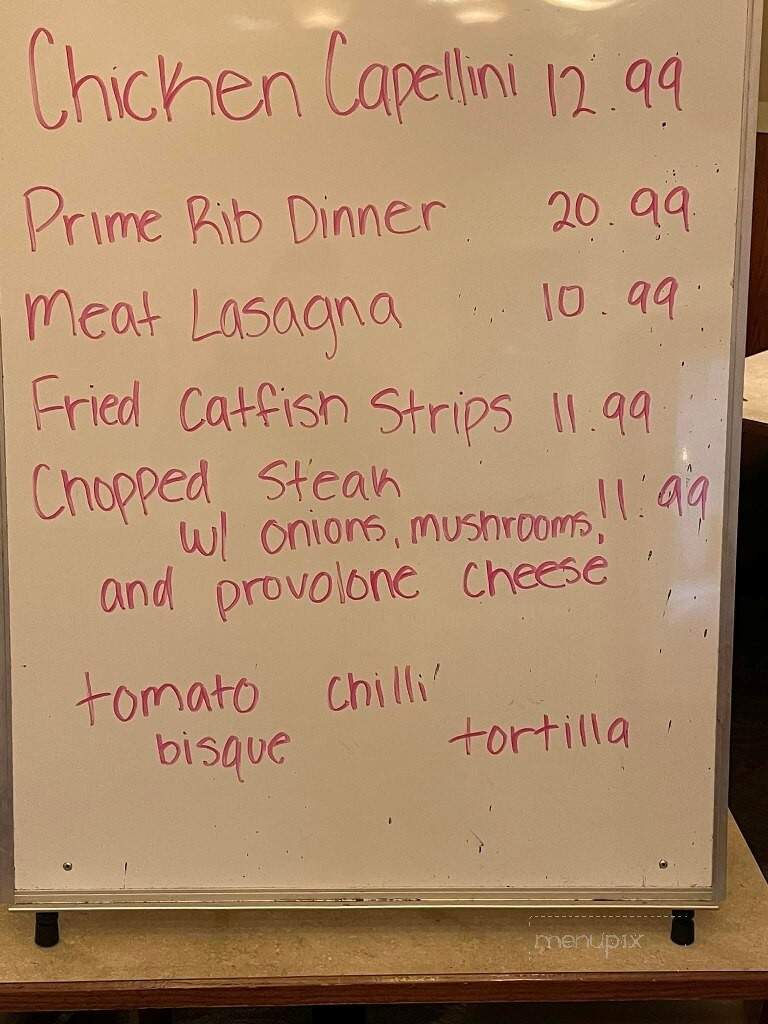 Chicken Capellini 12.99
Prime Rib Dinner 20.99
Meat Lasagna 10.99
Fried Catfish Strips 11.99
Chopped Steak 11.99
w/ onions, mushrooms,
and provolone cheese
tomato chilli
bisque tortilla
menupix